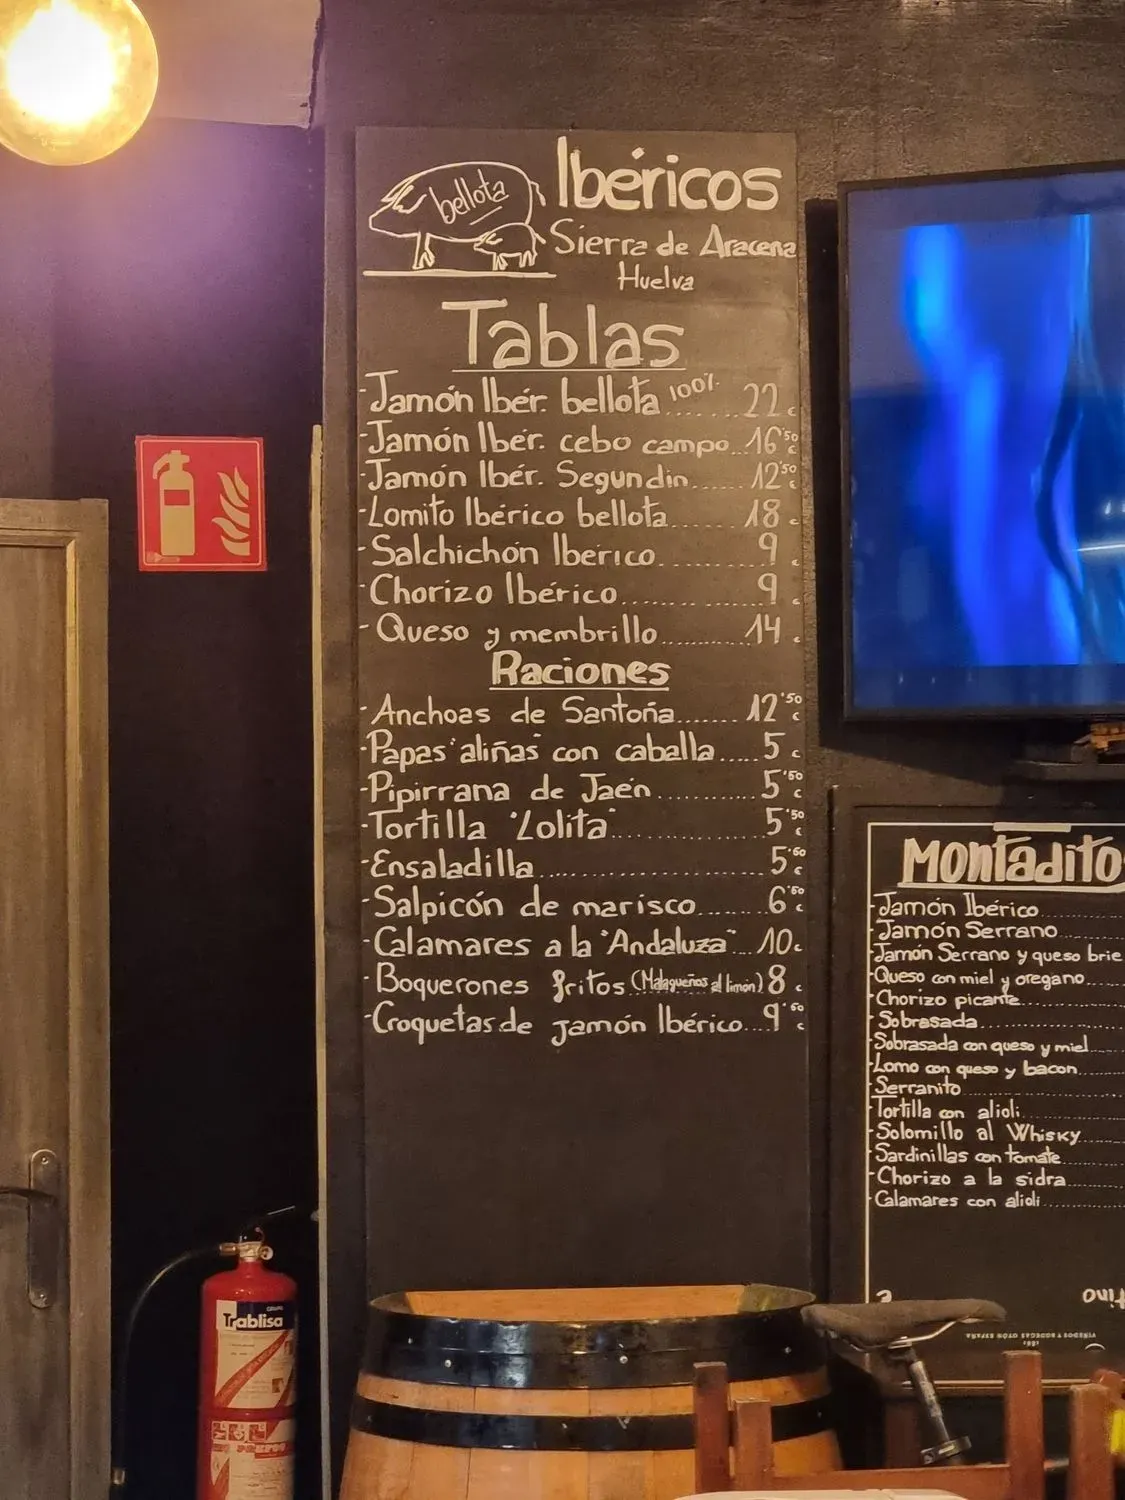 bellota
Ibéricos
Sierra de Aracena
Huelva
Tablas
-Jamón Ibér. bellota 100%.......22€
-Jamón Ibér. cebo campo..16'50€
-Jamón Ibér. Segundin......12'50€
-Lomito Ibérico bellota.......18€
-Salchichón Ibérico..............9€
-Chorizo Ibérico..................9€
-Queso y membrillo............14€
Raciones
-Anchoas de Santoña.......12'50€
-Papas "aliñas" con caballa.....5€
-Pipirrana de Jaén............5'50€
-Tortilla "Lolita"................5'50€
-Ensaladilla......................5'50€
-Salpicón de marisco........6'50€
-Calamares a la "Andaluza"...10€
-Boquerones fritos (Malagueños al limón) 8€
-Croquetas de jamón Ibérico...9'50€
Montadito
-Jamón Ibérico
-Jamón Serrano
-Jamón Serrano y queso brie
-Queso con miel y oregano
-Chorizo picante
-Sobrasada
-Sobrasada con queso y miel
-Lomo con queso y bacon
-Serranito
-Tortilla con alioli
-Solomillo al Whisky
-Sardinillas con tomate
-Chorizo a la sidra
-Calamares con alioli
VIÑEDOS Y BODEGAS OTON ESPAÑA
GRUPO
Trablisa